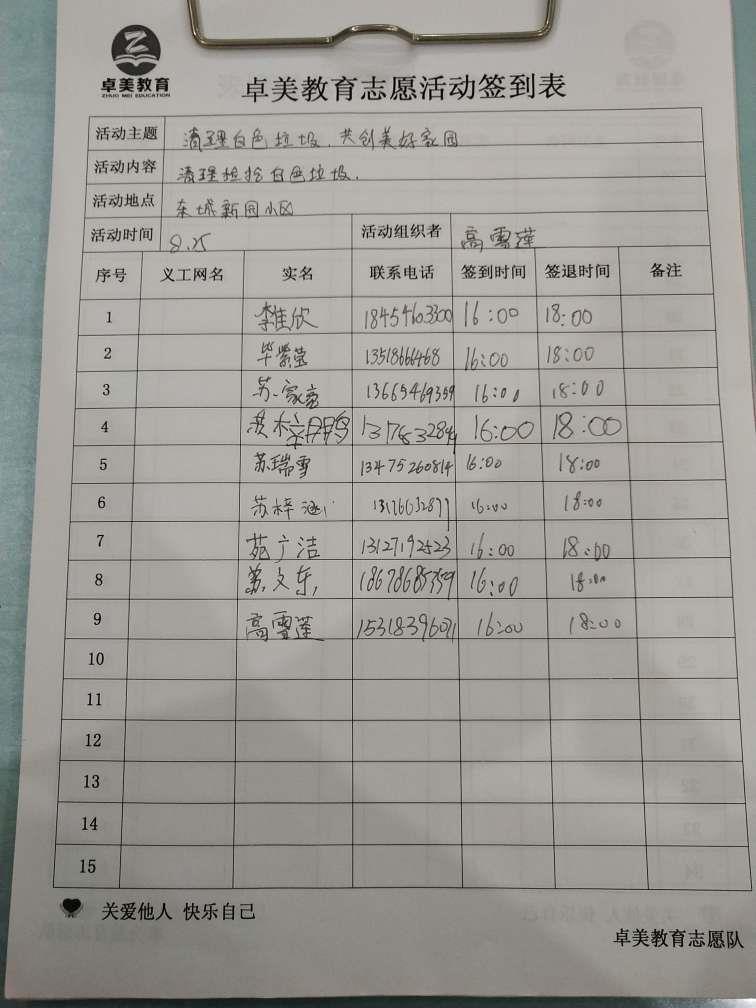 卓美教育
ZHUO MEI EDUCATION
卓美教育志愿活动签到表
活动主题 清理白色垃圾.共创美好家园
活动内容 清理捡拾白色垃圾.
活动地点 东城新园小区
活动时间 8.25 活动组织者 高雪莲
序号 义工网名 实名 联系电话 签到时间 签退时间 备注
1 李佳欣 18454603300 16:00 18:00
2 毕紫莹 13518666468 16:00 18:00
3 苏家意 13665469359 16:00 18:00
4 16:00 18:00
5 苏瑞雪 13475260814 16:00 18:00
6 苏梓涵 16:00 18:00
7 苑广洁 13127192523 16:00 18:00
8 苏文东 18678685759 16:00 18:00
9 高雪莲 15318396071 16:00 18:00
10
11
12
13
14
15
关爱他人 快乐自己
卓美教育志愿队